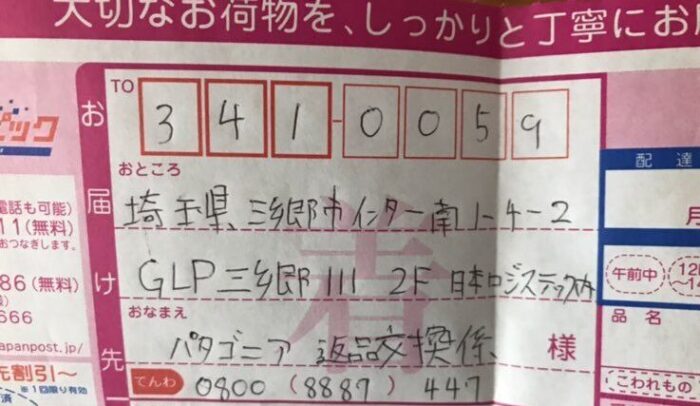 大切なお荷物を、しっかりと丁寧にお
TO
341-0059
おところ
お届け先
埼玉県三郷市インター南1-4-2
GLP三郷III 2F 日本ロジステックス内
着
おなまえ
パタゴニア 返品交換係 様
てんわ 0800 (8887) 447
ピック
電話も可能)
11(無料)
おつなぎします。
86(無料)
666
apanpost.jp/
元割引〜
※1回限り有効
済
配達
月
午前中
12
〜1
品名
こわれもの